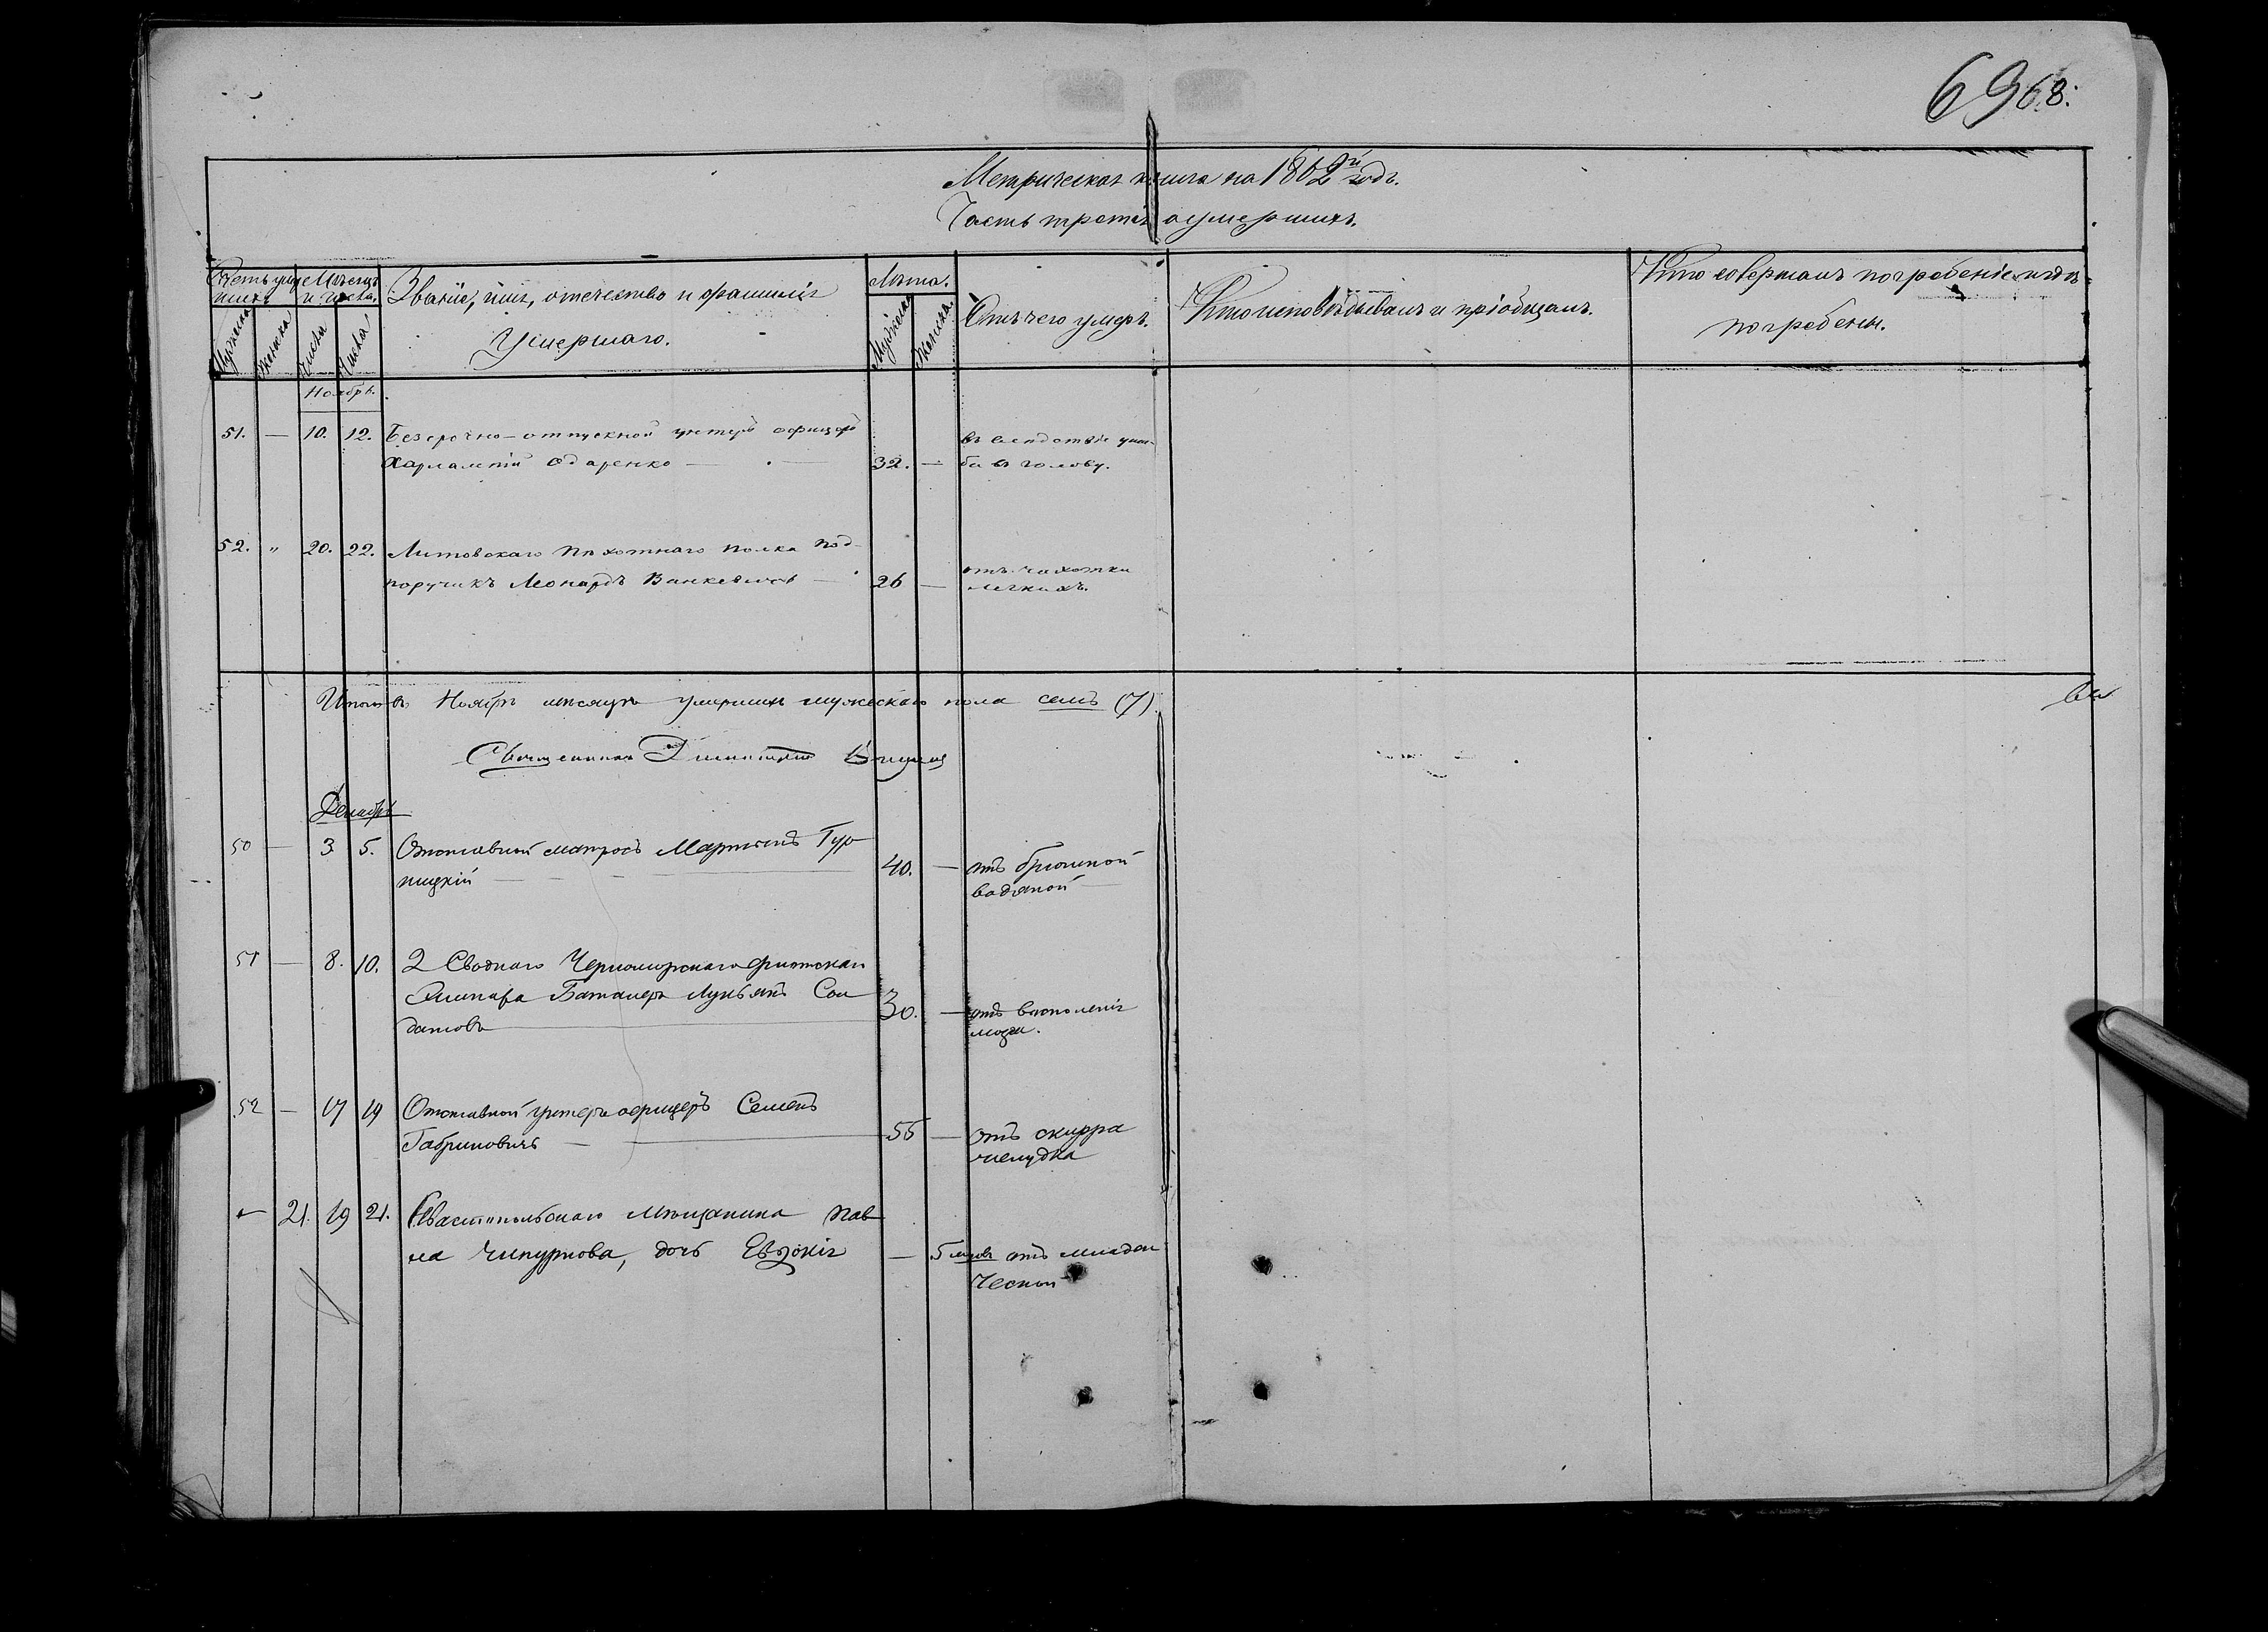 6968.
Метрическая книга на 1862й годъ.
Часть третія о умершихъ.
Счетъ умершихъ
Мужеска
Женска
Мѣсяцъ и числа.
Числа
Числа
Званіе, имя, отечество и фамилія
Умершаго.
Лѣта.
Мужеска
Женска.
Отъ чего умеръ.
Кто исповѣдывалъ и пріобщалъ.
Кто совершалъ погребеніе и гдѣ
погребены.
Ноябрь.
51. — 10. 12. Безсрочно-отпускной унтеръ офицеръ въ следствіе уши-
Харлампій Одаренко — 32. — ба въ голову.
52. " 20. 22. Литовскаго пѣхотнаго полка под-
поручикъ Леонардъ Ванкевичъ — 26 — отъ чахотки
легкихъ.
Итого въ Ноябрѣ мѣсяцѣ умершихъ мужескаго пола семь (7).
Священникъ Димитрій
Декабрь
50 — 3 5. Отставной матросъ Мартынъ Гур-
ницкій — 40. — отъ брюшной
водяной
51 — 8. 10. 2 Своднаго Черноморскаго флотскаго
Экипажа Баталеръ Лукьянъ Сол
датовъ — 30. — отъ воспаленія
мозга.
52 — 17 19 Отставной унтеръ офицеръ Семенъ
Габриновичъ — 55 — отъ скирра
желудка
— 21. 19 21. Севастопольскаго Мѣщанина Пав
ла Чипурнова, дочь Евдокія — 5 месяц. отъ младен
ческой